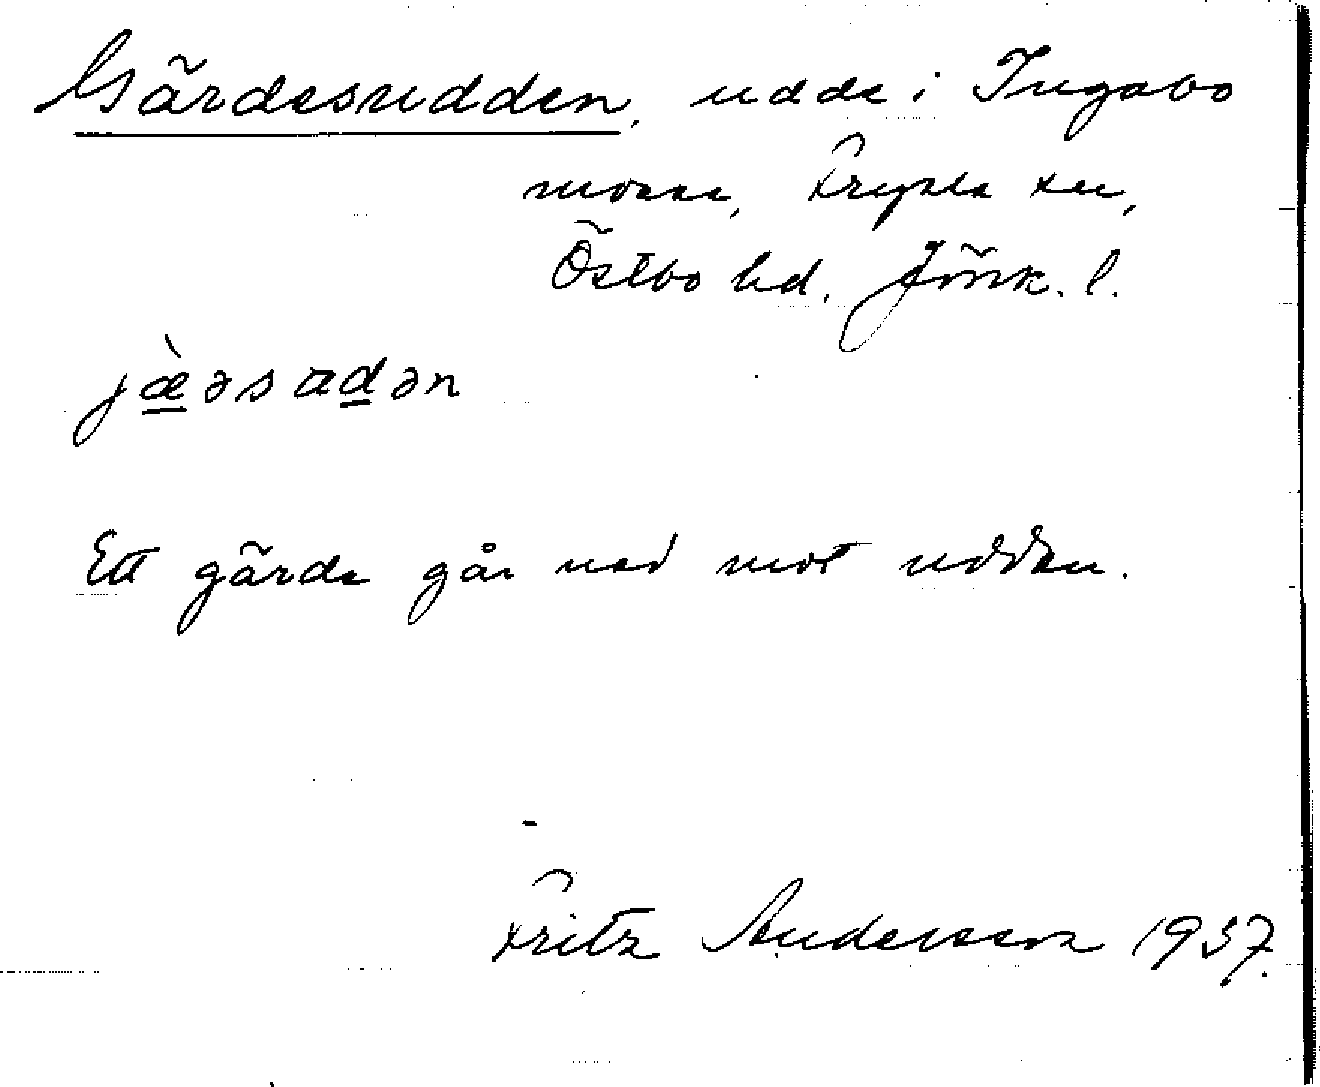 Gärdesudden, udde i Ingabo
mosse, Fryele sn,
Östbo hd. Jönk. l.
jæ̀əsadən
Ett gärde går ned mot udden.
Fritz Andersson 1937.